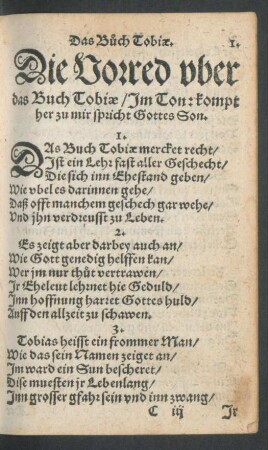 Das Bůch Tobiæ. 1.
Die Vorred vber
das Buch Tobiæ / Im Ton: kompt
her zu mir spricht Gottes Son.
1.
DAs Buch Tobiæ mercket recht /
Ist ein Lehr fast aller Geschecht /
Die sich inn Ehestand geben /
Wie vbel es darinnen gehe /
Daß offt manchem geschech gar wehe /
Vnd jhn verdreusst zu Leben.
2.
Es zeigt aber darbey auch an /
Wie Gott genedig helffen kan /
Wer jm nur thůt vertrawen /
Jr Eheleut lehrnet hie Geduld /
Inn hoffnung harret Gottes huld /
Auff den allzeit zu schawen.
3.
Tobias heisst ein frommer Man /
Wie das sein Namen zeiget an /
Im ward ein Sun bescheret /
Dise muesten jr Lebenlang /
Inn grosser gfahr sein vnd inn zwang /
C iij Jr